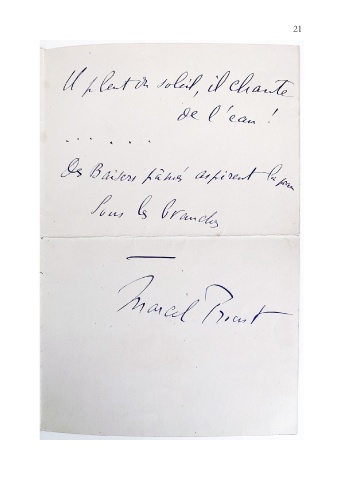 21
Il pleut du soleil, il chante
de l'eau!
. . . . . .
Des Baisers pâmés aspirent la
Sous les branches
Marcel Proust